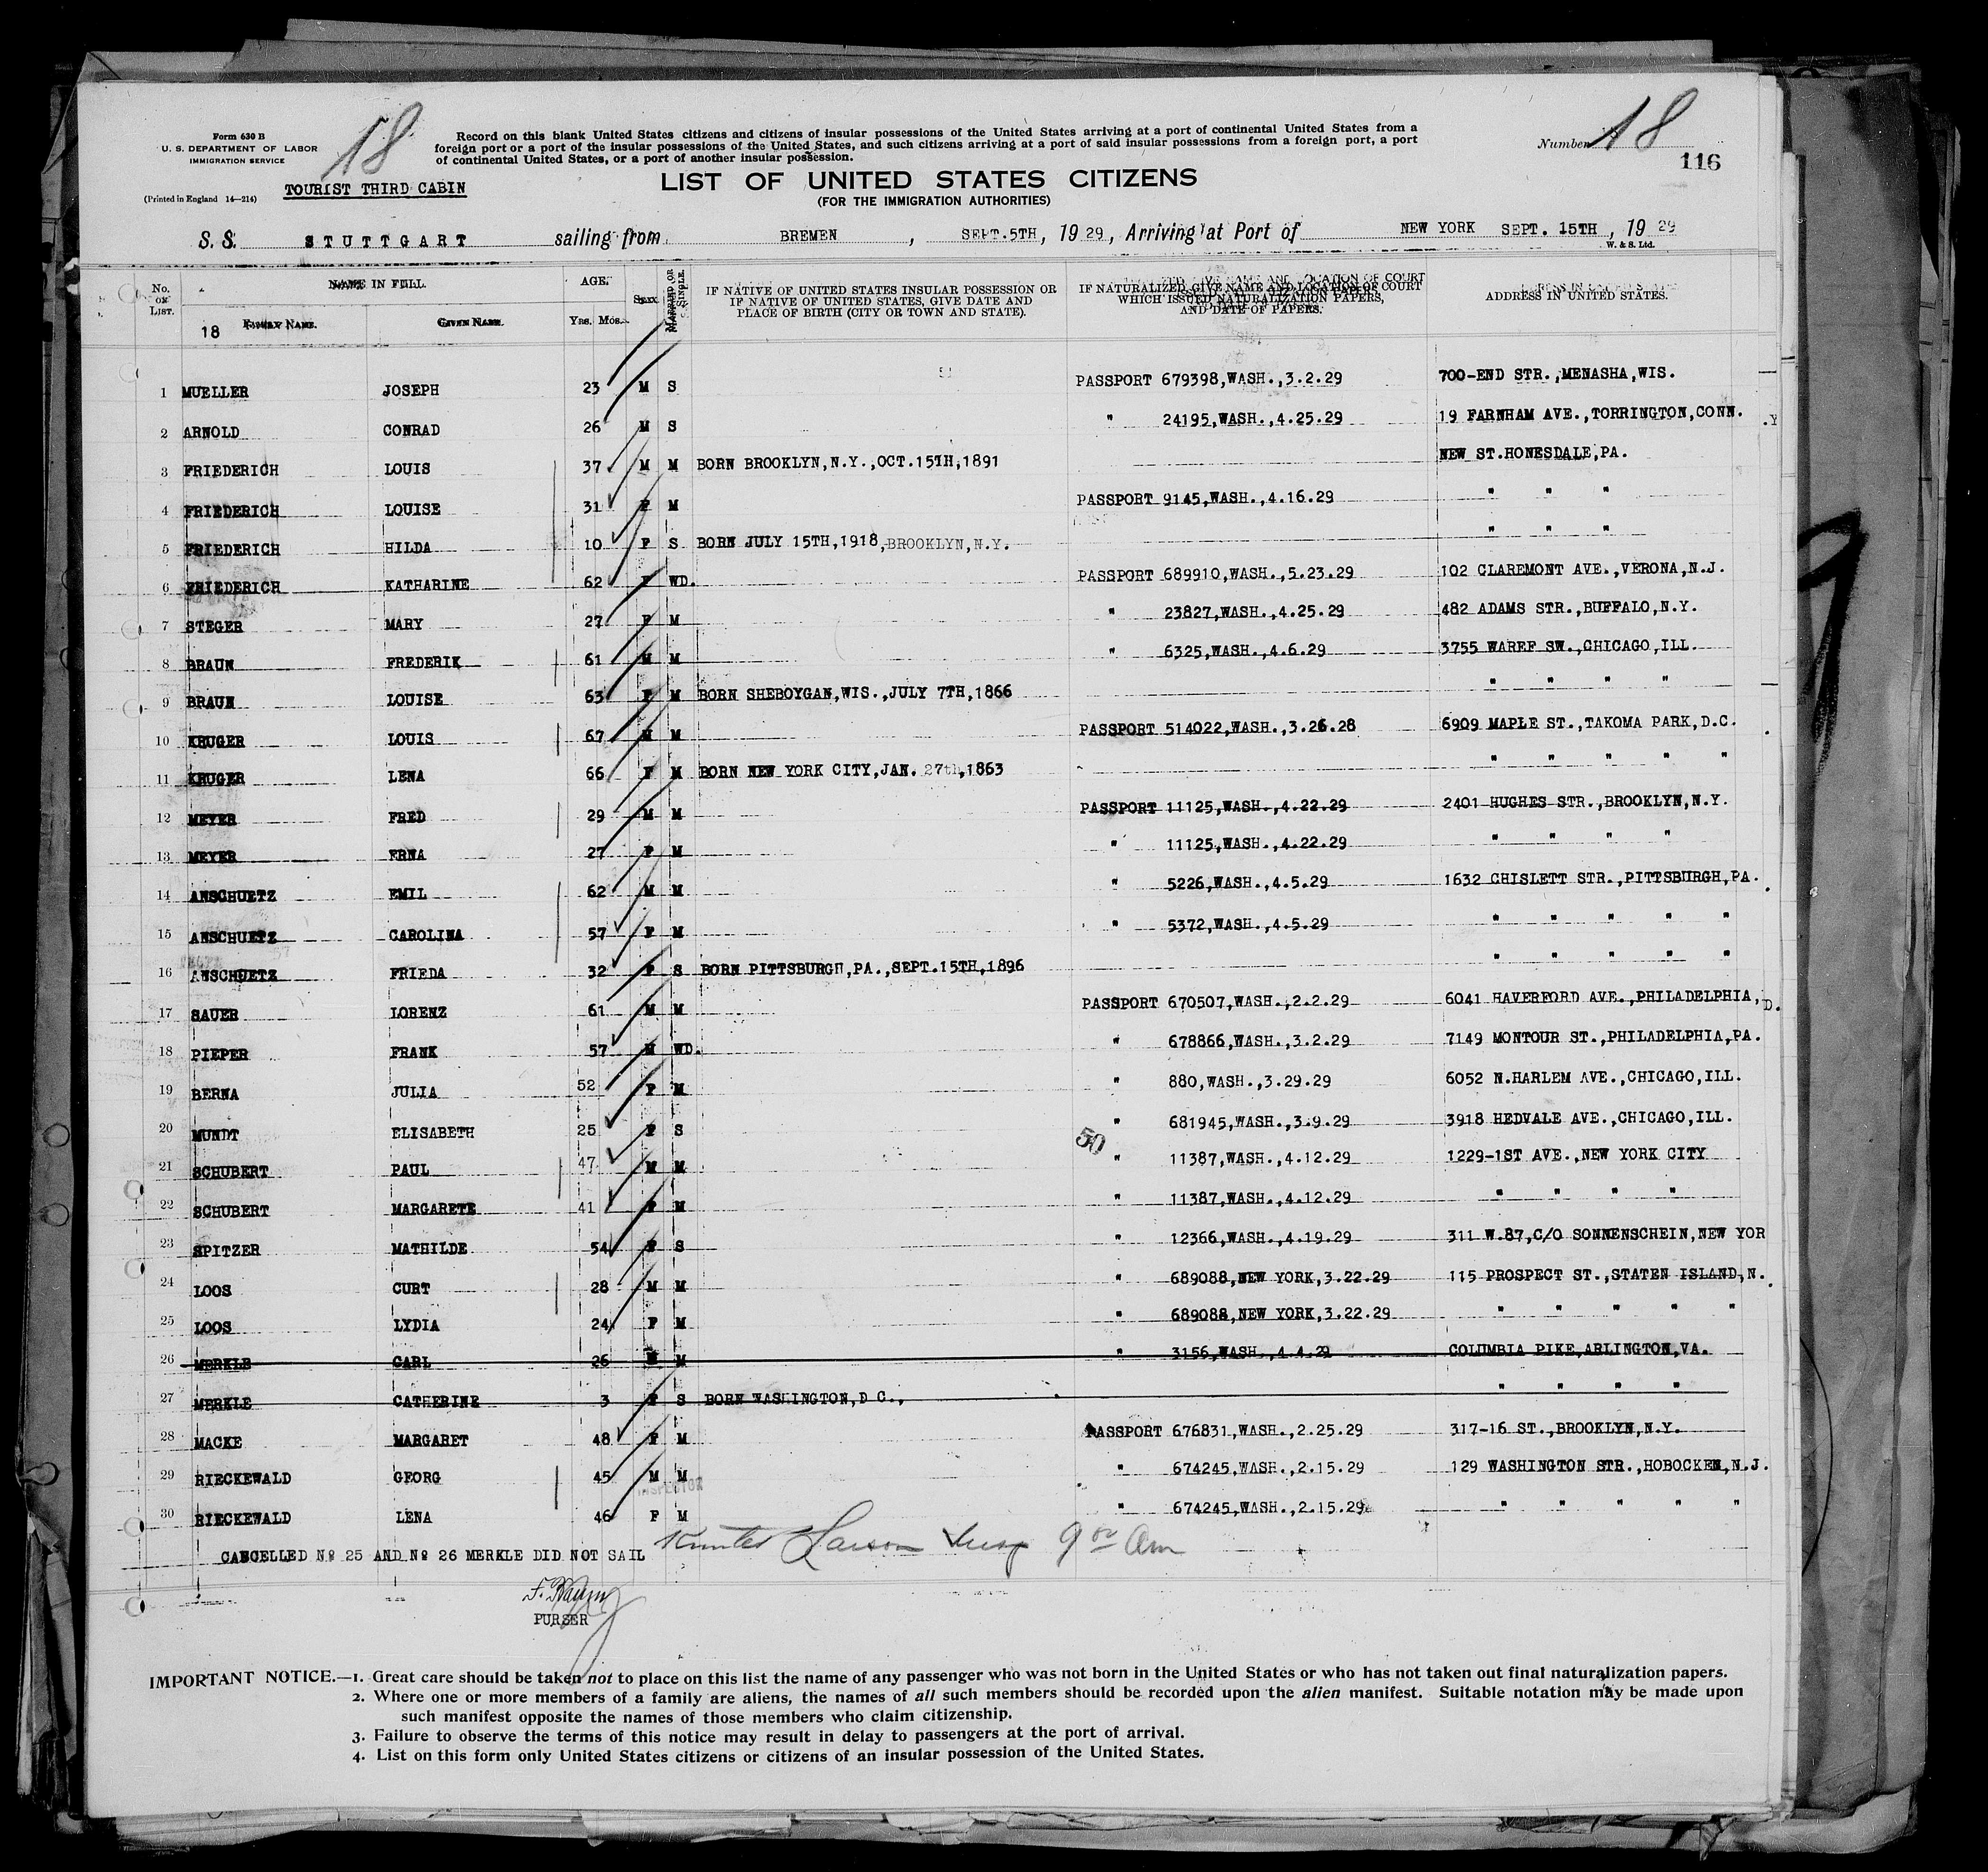 Form 630 B
U. S. DEPARTMENT OF LABOR
IMMIGRATION SERVICE
(Printed in England 14—214)
18
TOURIST THIRD CABIN
Record on this blank United States citizens and citizens of insular possessions of the United States arriving at a port of continental United States from a
foreign port or a port of the insular possessions of the United States, and such citizens arriving at a port of said insular possessions from a foreign port, a port
of continental United States, or a port of another insular possession.
Number 18
116
LIST OF UNITED STATES CITIZENS
(FOR THE IMMIGRATION AUTHORITIES)
S. S. STUTTGART sailing from BREMEN, SEPT.5TH, 1929, Arriving at Port of NEW YORK SEPT. 15TH, 1929
W. & S. Ltd.
No. ON LIST. NAME IN FULL. AGE. Sex. MARRIED OR SINGLE. IF NATIVE OF UNITED STATES INSULAR POSSESSION OR IF NATIVE OF UNITED STATES, GIVE DATE AND PLACE OF BIRTH (CITY OR TOWN AND STATE). IF NATURALIZED, GIVE NAME AND LOCATION OF COURT WHICH ISSUED NATURALIZATION PAPERS, AND DATE OF PAPERS. ADDRESS IN UNITED STATES.
18 FAMILY NAME. GIVEN NAME. Yrs. Mos.
1 MUELLER JOSEPH 23 M S PASSPORT 679398,WASH.,3.2.29 700-END STR.,MENASHA,WIS.
2 ARNOLD CONRAD 26 M S " 24195,WASH.,4.25.29 19 FARNHAM AVE.,TORRINGTON,CONN.
3 FRIEDERICH LOUIS 37 M M BORN BROOKLYN,N.Y.,OCT.15TH,1891 NEW ST.HONESDALE,PA.
4 FRIEDERICH LOUISE 31 F M PASSPORT 9145,WASH.,4.16.29 " " "
5 FRIEDERICH HILDA 10 F S BORN JULY 15TH,1918,BROOKLYN,N.Y. " " "
6 FRIEDERICH KATHARINE 62 F WD. PASSPORT 689910,WASH.,5.23.29 102 CLAREMONT AVE.,VERONA,N.J.
7 STEGER MARY 27 F M " 23827,WASH.,4.25.29 482 ADAMS STR.,BUFFALO,N.Y.
8 BRAUN FREDERIK 61 M M " 6325,WASH.,4.6.29 3755 WAREF SW.,CHICAGO,ILL.
9 BRAUN LOUISE 63 F M BORN SHEBOYGAN,WIS.,JULY 7TH,1866 " " " "
10 KRUGER LOUIS 67 M M PASSPORT 514022,WASH.,3.26.28 6909 MAPLE ST.,TAKOMA PARK,D.C.
11 KRUGER LENA 66 F M BORN NEW YORK CITY,JAN. 27th,1863 " " " " "
12 MEYER FRED 29 M M PASSPORT 11125,WASH.,4.22.29 2401 HUGHES STR.,BROOKLYN,N.Y.
13 MEYER ERNA 27 F M " 11125,WASH.,4.22.29 " " " "
14 ANSCHUETZ EMIL 62 M M " 5226,WASH.,4.5.29 1632 CHISLETT STR.,PITTSBURGH,PA.
15 ANSCHUETZ CAROLINA 57 F M " 5372,WASH.,4.5.29 " " " " "
16 ANSCHUETZ FRIEDA 32 F S BORN PITTSBURGH,PA.,SEPT.15TH,1896 " " " " "
17 SAUER LORENZ 61 M M PASSPORT 670507,WASH.,2.2.29 6041 HAVERFORD AVE.,PHILADELPHIA,
18 PIEPER FRANK 57 M WD. " 678866,WASH.,3.2.29 7149 MONTOUR ST.,PHILADELPHIA,PA.
19 BERNA JULIA 52 F M " 880,WASH.,3.29.29 6052 N.HARLEM AVE.,CHICAGO,ILL.
20 MUNDT ELISABETH 25 F S " 681945,WASH.,3.9.29 3918 HEDVALE AVE.,CHICAGO,ILL.
50
21 SCHUBERT PAUL 47 M M " 11387,WASH.,4.12.29 1229-1ST AVE.,NEW YORK CITY
22 SCHUBERT MARGARETE 41 F M " 11387,WASH.,4.12.29 " " " "
23 SPITZER MATHILDE 54 F S " 12366,WASH.,4.19.29 311 W.87,C/O SONNENSCHEIN,NEW YOR
24 LOOS CURT 28 M M " 689088,NEW YORK,3.22.29 115 PROSPECT ST.,STATEN ISLAND,N.
25 LOOS LYDIA 24 F M " 689088,NEW YORK,3.22.29 " " " " "
26 MERKLE CARL 26 M M " 3156,WASH.,4.4.29 COLUMBIA PIKE,ARLINGTON,VA.
27 MERKLE CATHERINE 3 F S BORN WASHINGTON,D C., " " " "
28 MACKE MARGARET 48 F M PASSPORT 676831,WASH.,2.25.29 317-16 ST.,BROOKLYN,N.Y.
29 RIECKEWALD GEORG 45 M M " 674245,WASH.,2.15.29 129 WASHINGTON STR.,HOBOCKEN,N.J.
INSPECTOR
30 RIECKEWALD LENA 46 F M " 674245,WASH.,2.15.29 " " " " "
CANCELLED No 25 AND No 26 MERKLE DID NOT SAIL Larson Insp 9 00 Am
PURSER
IMPORTANT NOTICE.—1. Great care should be taken not to place on this list the name of any passenger who was not born in the United States or who has not taken out final naturalization papers.
2. Where one or more members of a family are aliens, the names of all such members should be recorded upon the alien manifest. Suitable notation may be made upon
such manifest opposite the names of those members who claim citizenship.
3. Failure to observe the terms of this notice may result in delay to passengers at the port of arrival.
4. List on this form only United States citizens or citizens of an insular possession of the United States.